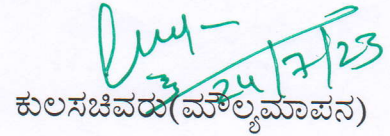 24/7/23
ಕುಲಸಚಿವರು(ಮೌಲ್ಯಮಾಪನ)